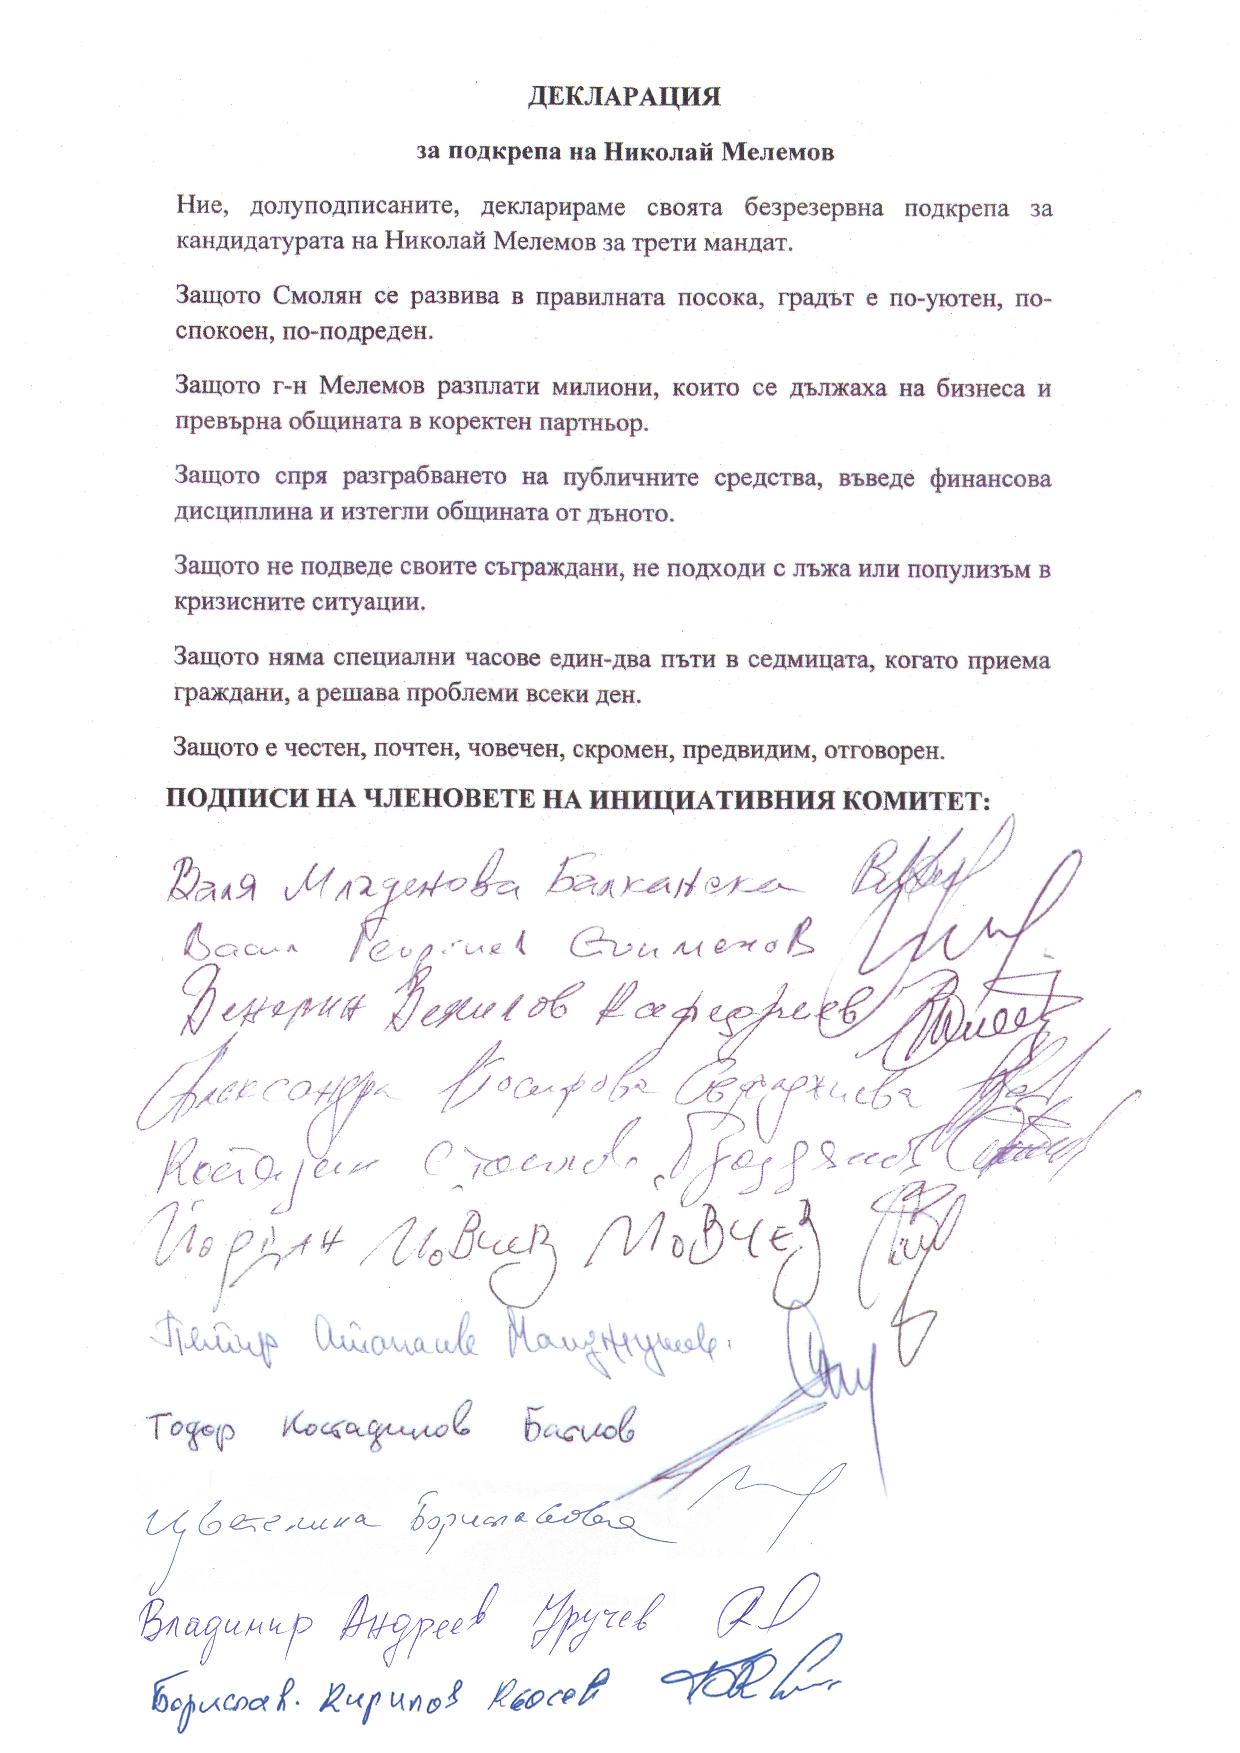 ДЕКЛАРАЦИЯ
за подкрепа на Николай Мелемов
Ние, долуподписаните, декларираме своята безрезервна подкрепа за
кандидатурата на Николай Мелемов за трети мандат.
Защото Смолян се развива в правилната посока, градът е по-уютен, по-
спокоен, по-подреден.
Защото г-н Мелемов разплати милиони, които се дължаха на бизнеса и
превърна общината в коректен партньор.
Защото спря разграбването на публичните средства, въведе финансова
дисциплина и изтегли общината от дъното.
Защото не подведе своите съграждани, не подходи с лъжа или популизъм в
кризисните ситуации.
Защото няма специални часове един-два пъти в седмицата, когато приема
граждани, а решава проблеми всеки ден.
Защото е честен, почтен, човечен, скромен, предвидим, отговорен.
ПОДПИСИ НА ЧЛЕНОВЕТЕ НА ИНИЦИАТИВНИЯ КОМИТЕТ:
Валя Младенова Балканска
Васил Георгиев
Венерин Кафеджиев
Александра
Костадин Стоилов
Йордан Йовчев Йовчев
Петър Атанасов
Тодор Костадинов Батков
Цветелина Бориславова
Владимир Андреев Уручев
Борислав Кирилов Кьосев